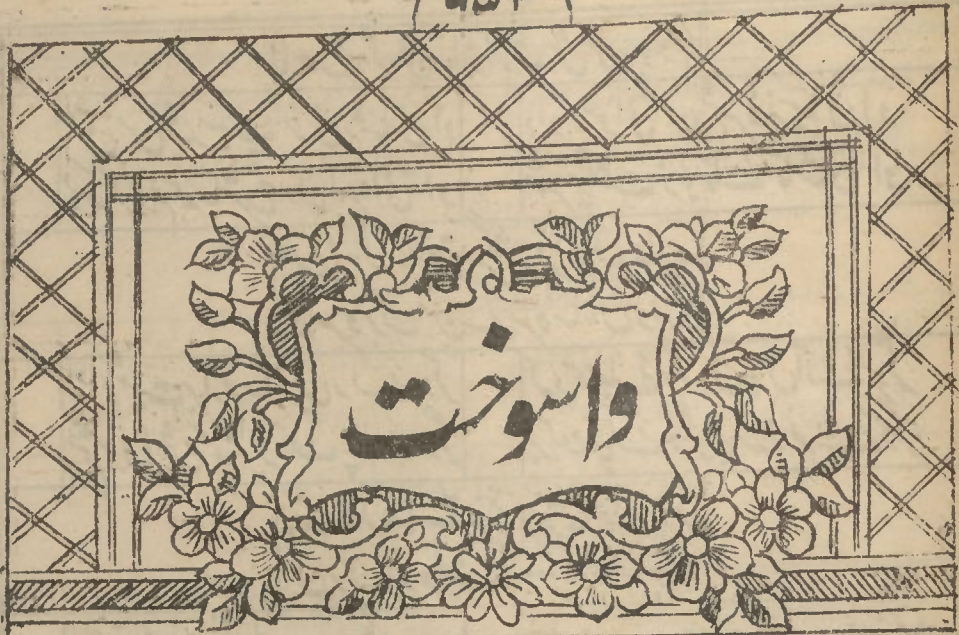 واسوخت